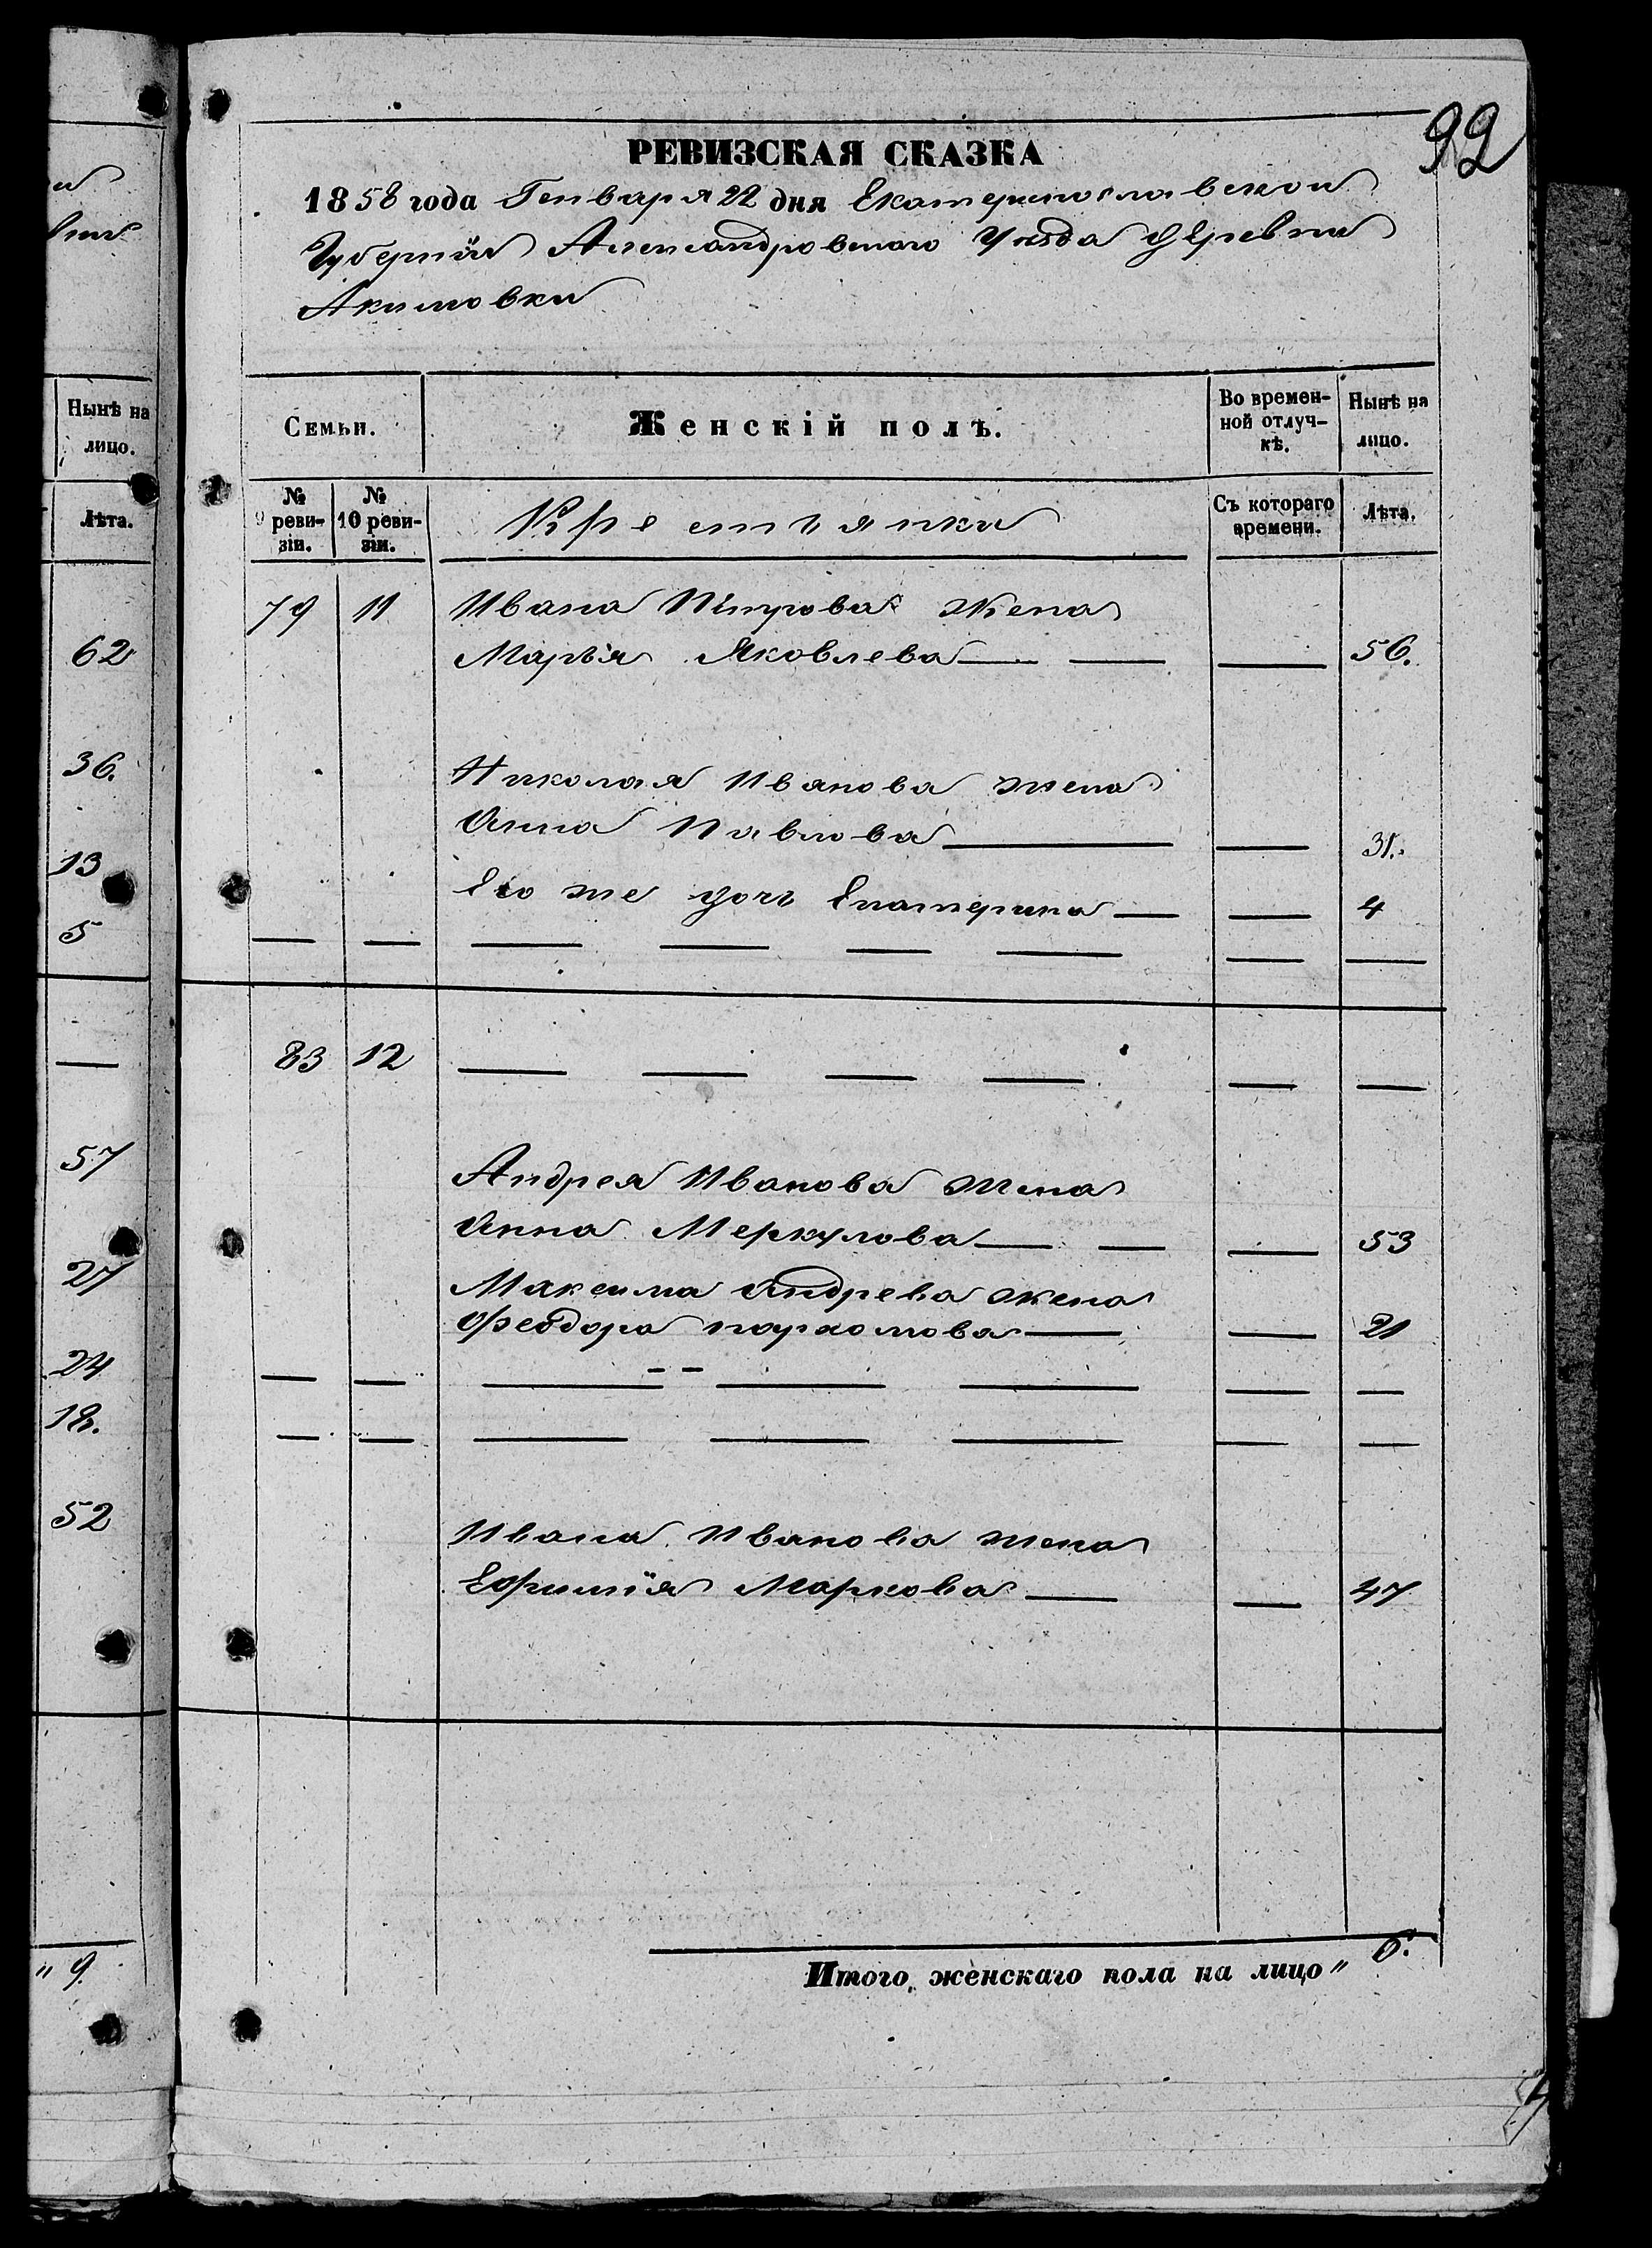 92
РЕВИЗСКАЯ СКАЗКА
1858 года Генваря 22 дня Екатеринославской
Губерніи Александровскаго Уѣзда Деревни
Акимовки
Нынѣ на
лицо.
Лѣта.
62
36.
13
5
57
27
24
18.
52
" 9.
Семьи.
Женскій полъ.
Во времен-
ной отлуч-
кѣ.
Нынѣ на
лицо.
№
9 реви-
зіи.
№
10 реви-
зіи.
Крестьянки
Съ котораго
времени.
Лѣта.
79 11 Ивана Петрова жена
Марья Яковлева 56.
Николая Иванова жена
Анна Павлова 31.
Его же дочь Екатерина 4
83 12
Андрея Иванова жена
Анна Меркулова 53
Максима Андрева жена
Феодора пархомова 21
Ивана Иванова жена
Ефимія Маркова 47
Итого, женскаго пола на лицо " 6.